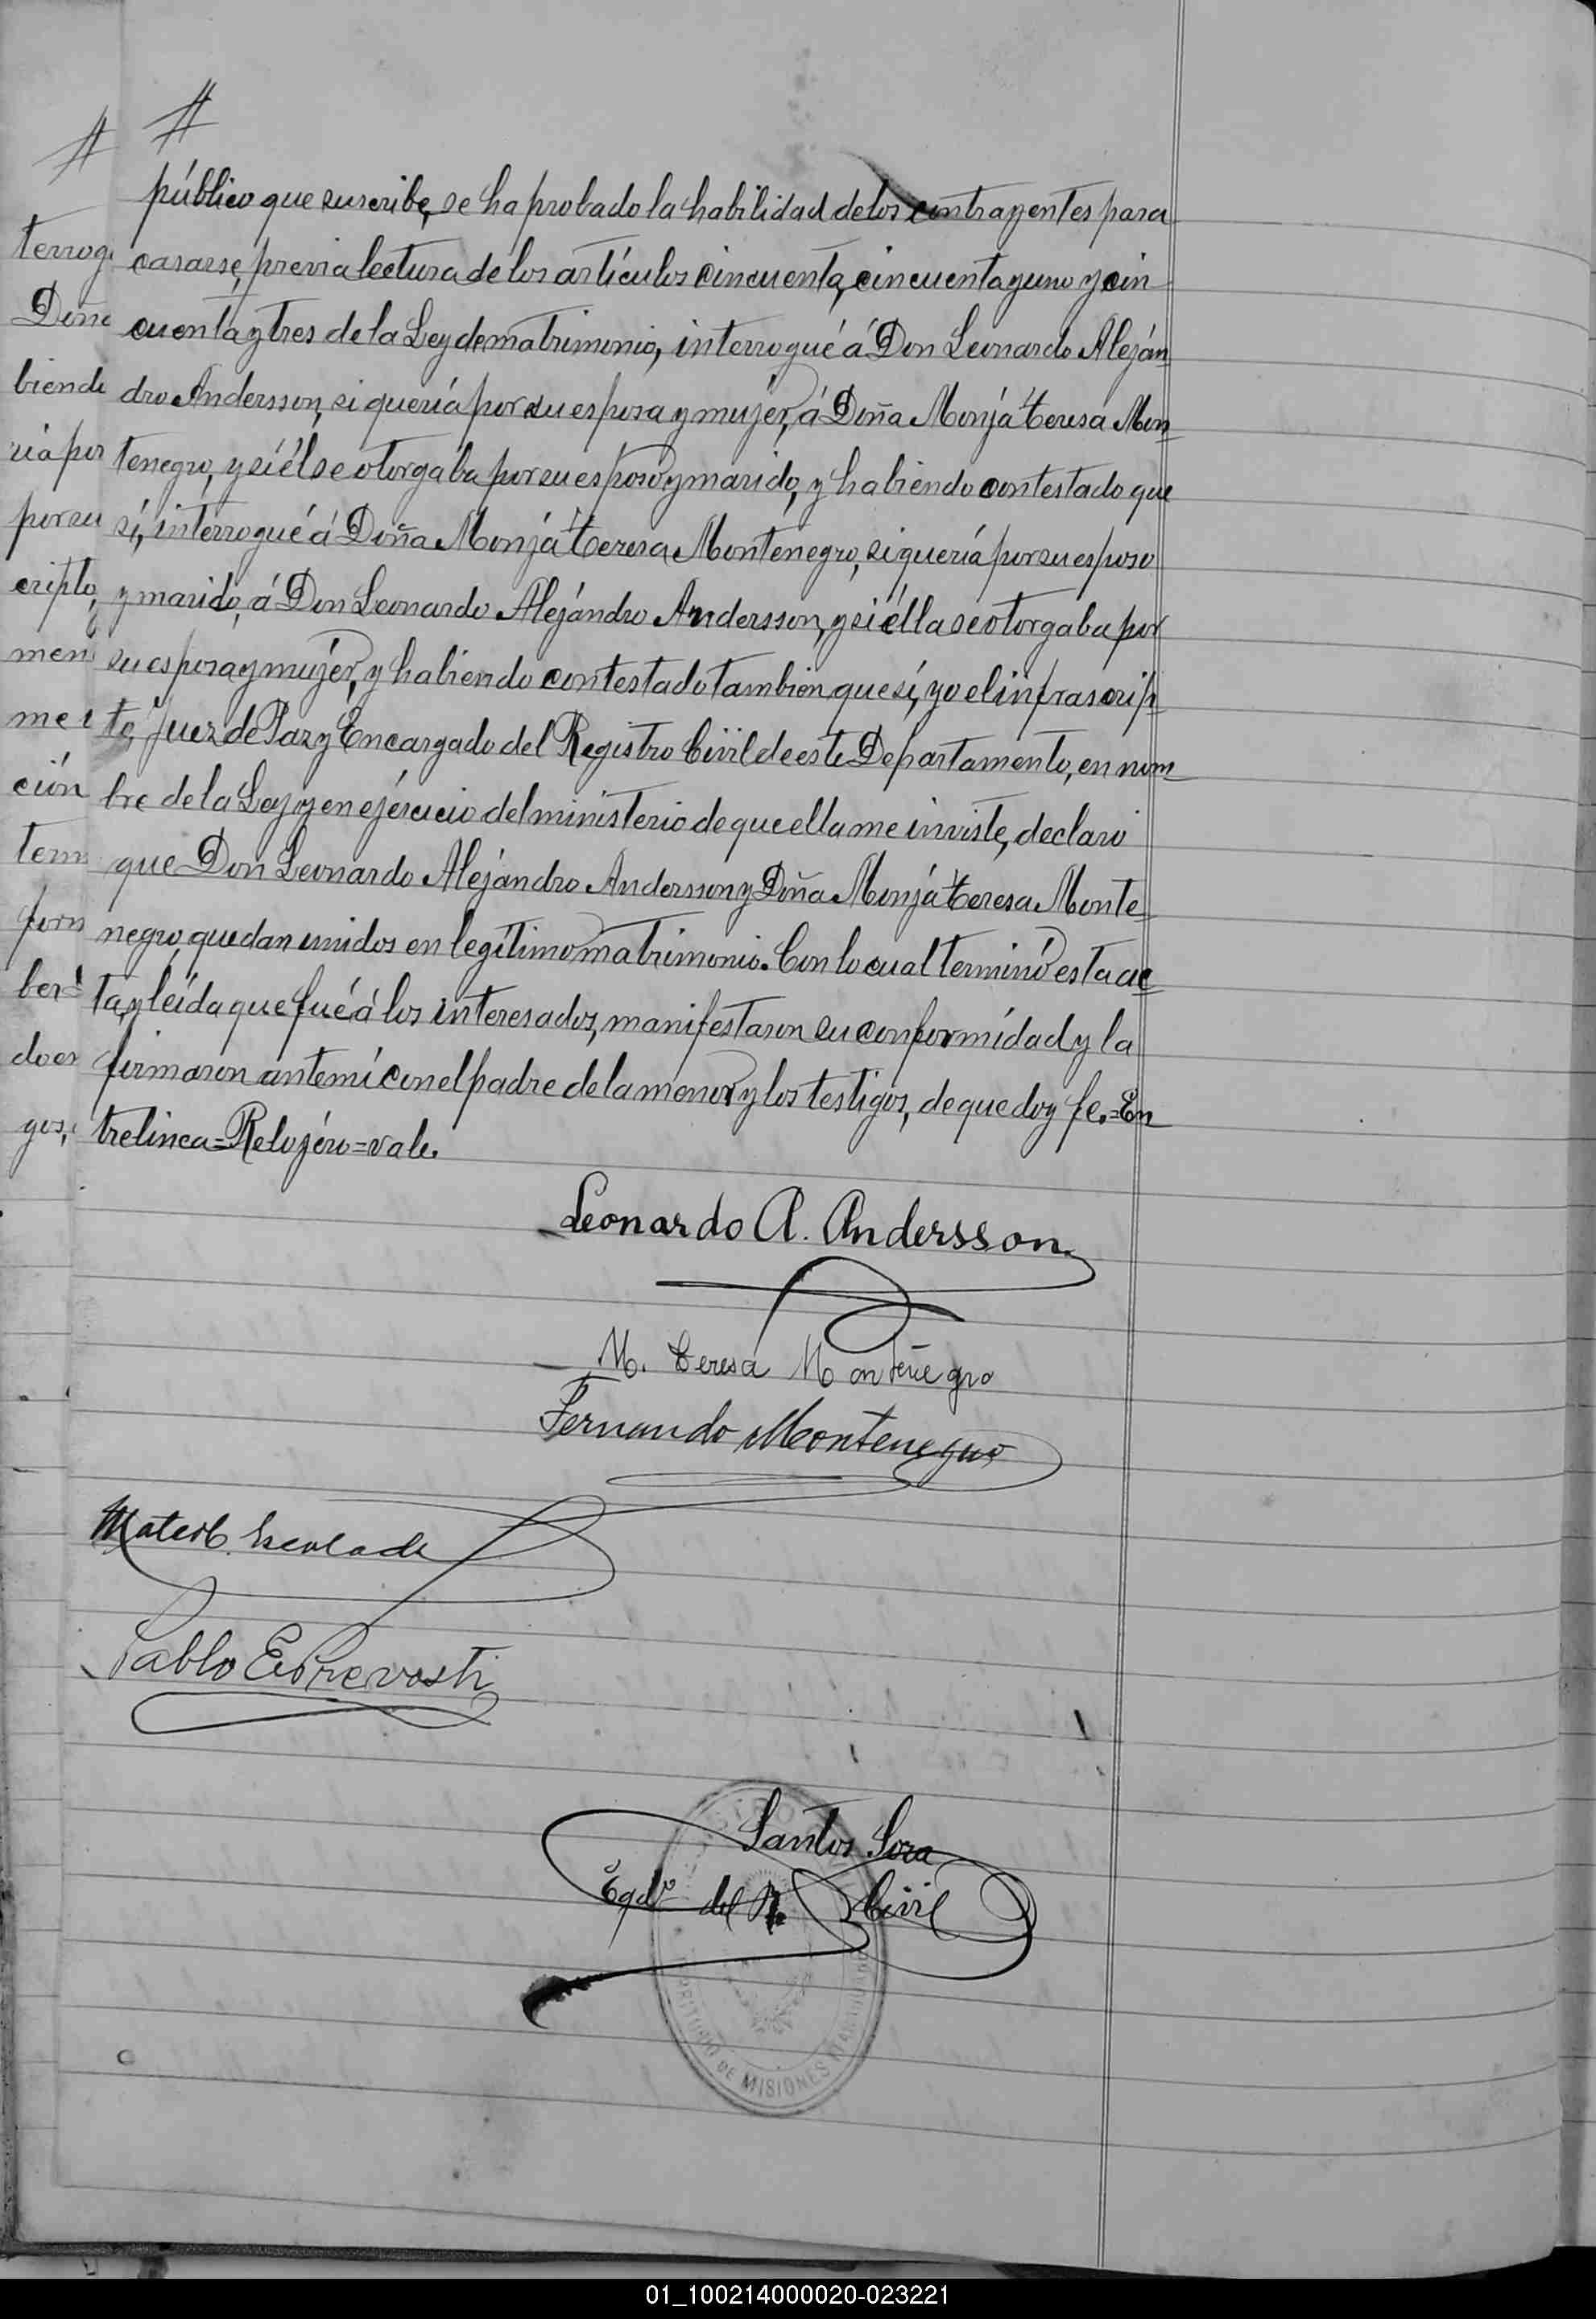 público que suscribe, se ha probado la habilidad de los contrayentes para
casarse, previa lectura de los artículos cincuenta, cincuenta y uno y cin
cuenta y tres de la Ley de matrimonio, interrogué á Don Leonardo Aleján
dro Andersson, si quería por su esposa y mujér, á Doña Monjá Teresa Mon
tenegro, y si él se otorgaba por su esposo y marido, y habiendo contestado que
sí, interrogué á Doña Monjá Teresa Montenegro, si quería por su esposo
y marido, á Don Leonardo Alejándro Andersson, y si élla se otorgaba por
su esposa y mujér, y habiendo contestado tambien que sí, yo el infrascrip
to, Juez de Paz y Encargado del Registro Civil de este Departamento, en nom
bre de la Ley y en ejércicio del ministerio de que ella me inviste, declaro
que Don Leonardo Alejándro Andersson y Doña Monjá Teresa Monte
negro, quedan unidos en legítimo matrimonio. Con lo cual terminó esta ac
ta, y leída que fué á los interesados, manifestaron su conformidad y la
firmaron ante mí con el padre de la menor y los testigos, de que doy fe.=En
trelinea=Relojéro=vale.
Leonardo A. Andersson
M. Teresa Montenegro
Fernando Montenegro
Mateo C. Escalada
Pablo E. Prevosti
Santos Sora
Egdo del R. Civil
TERRITORIO DE MISIONES
01_100214000020-023221